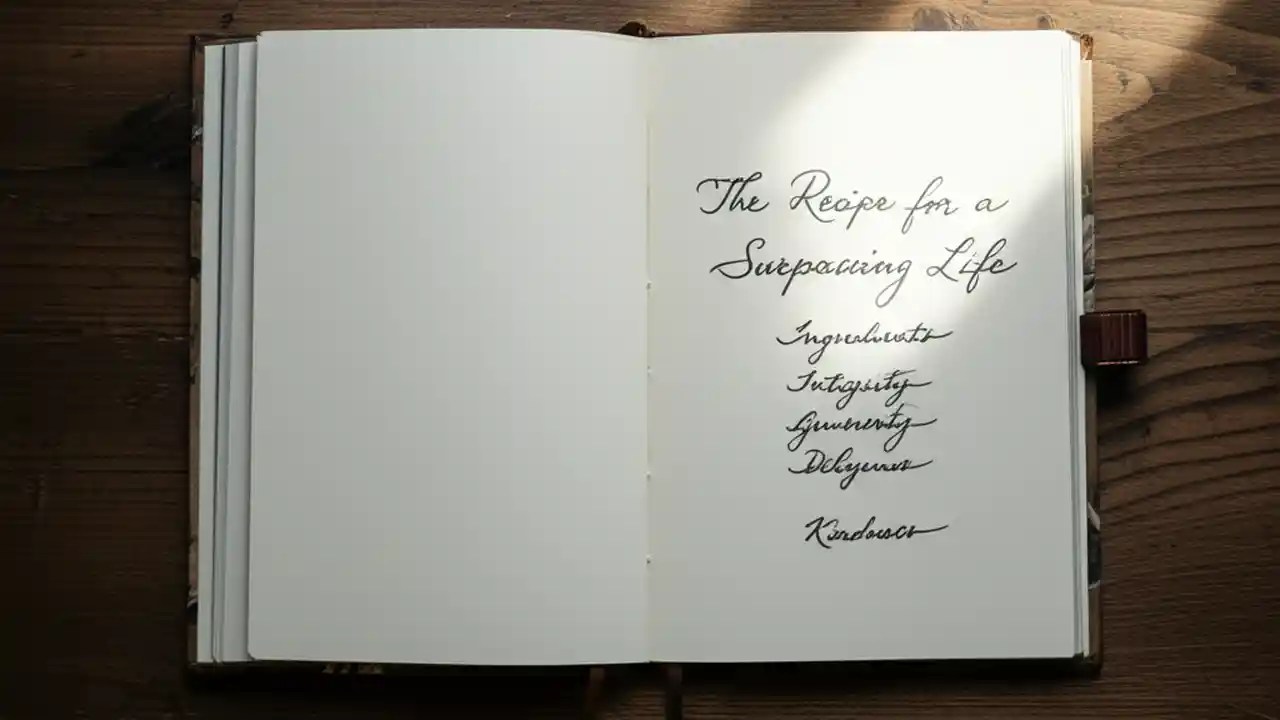 The Recipe for a
Surpassing Life
Ingredients
Integrity
Generosity
Diligence
Kindness